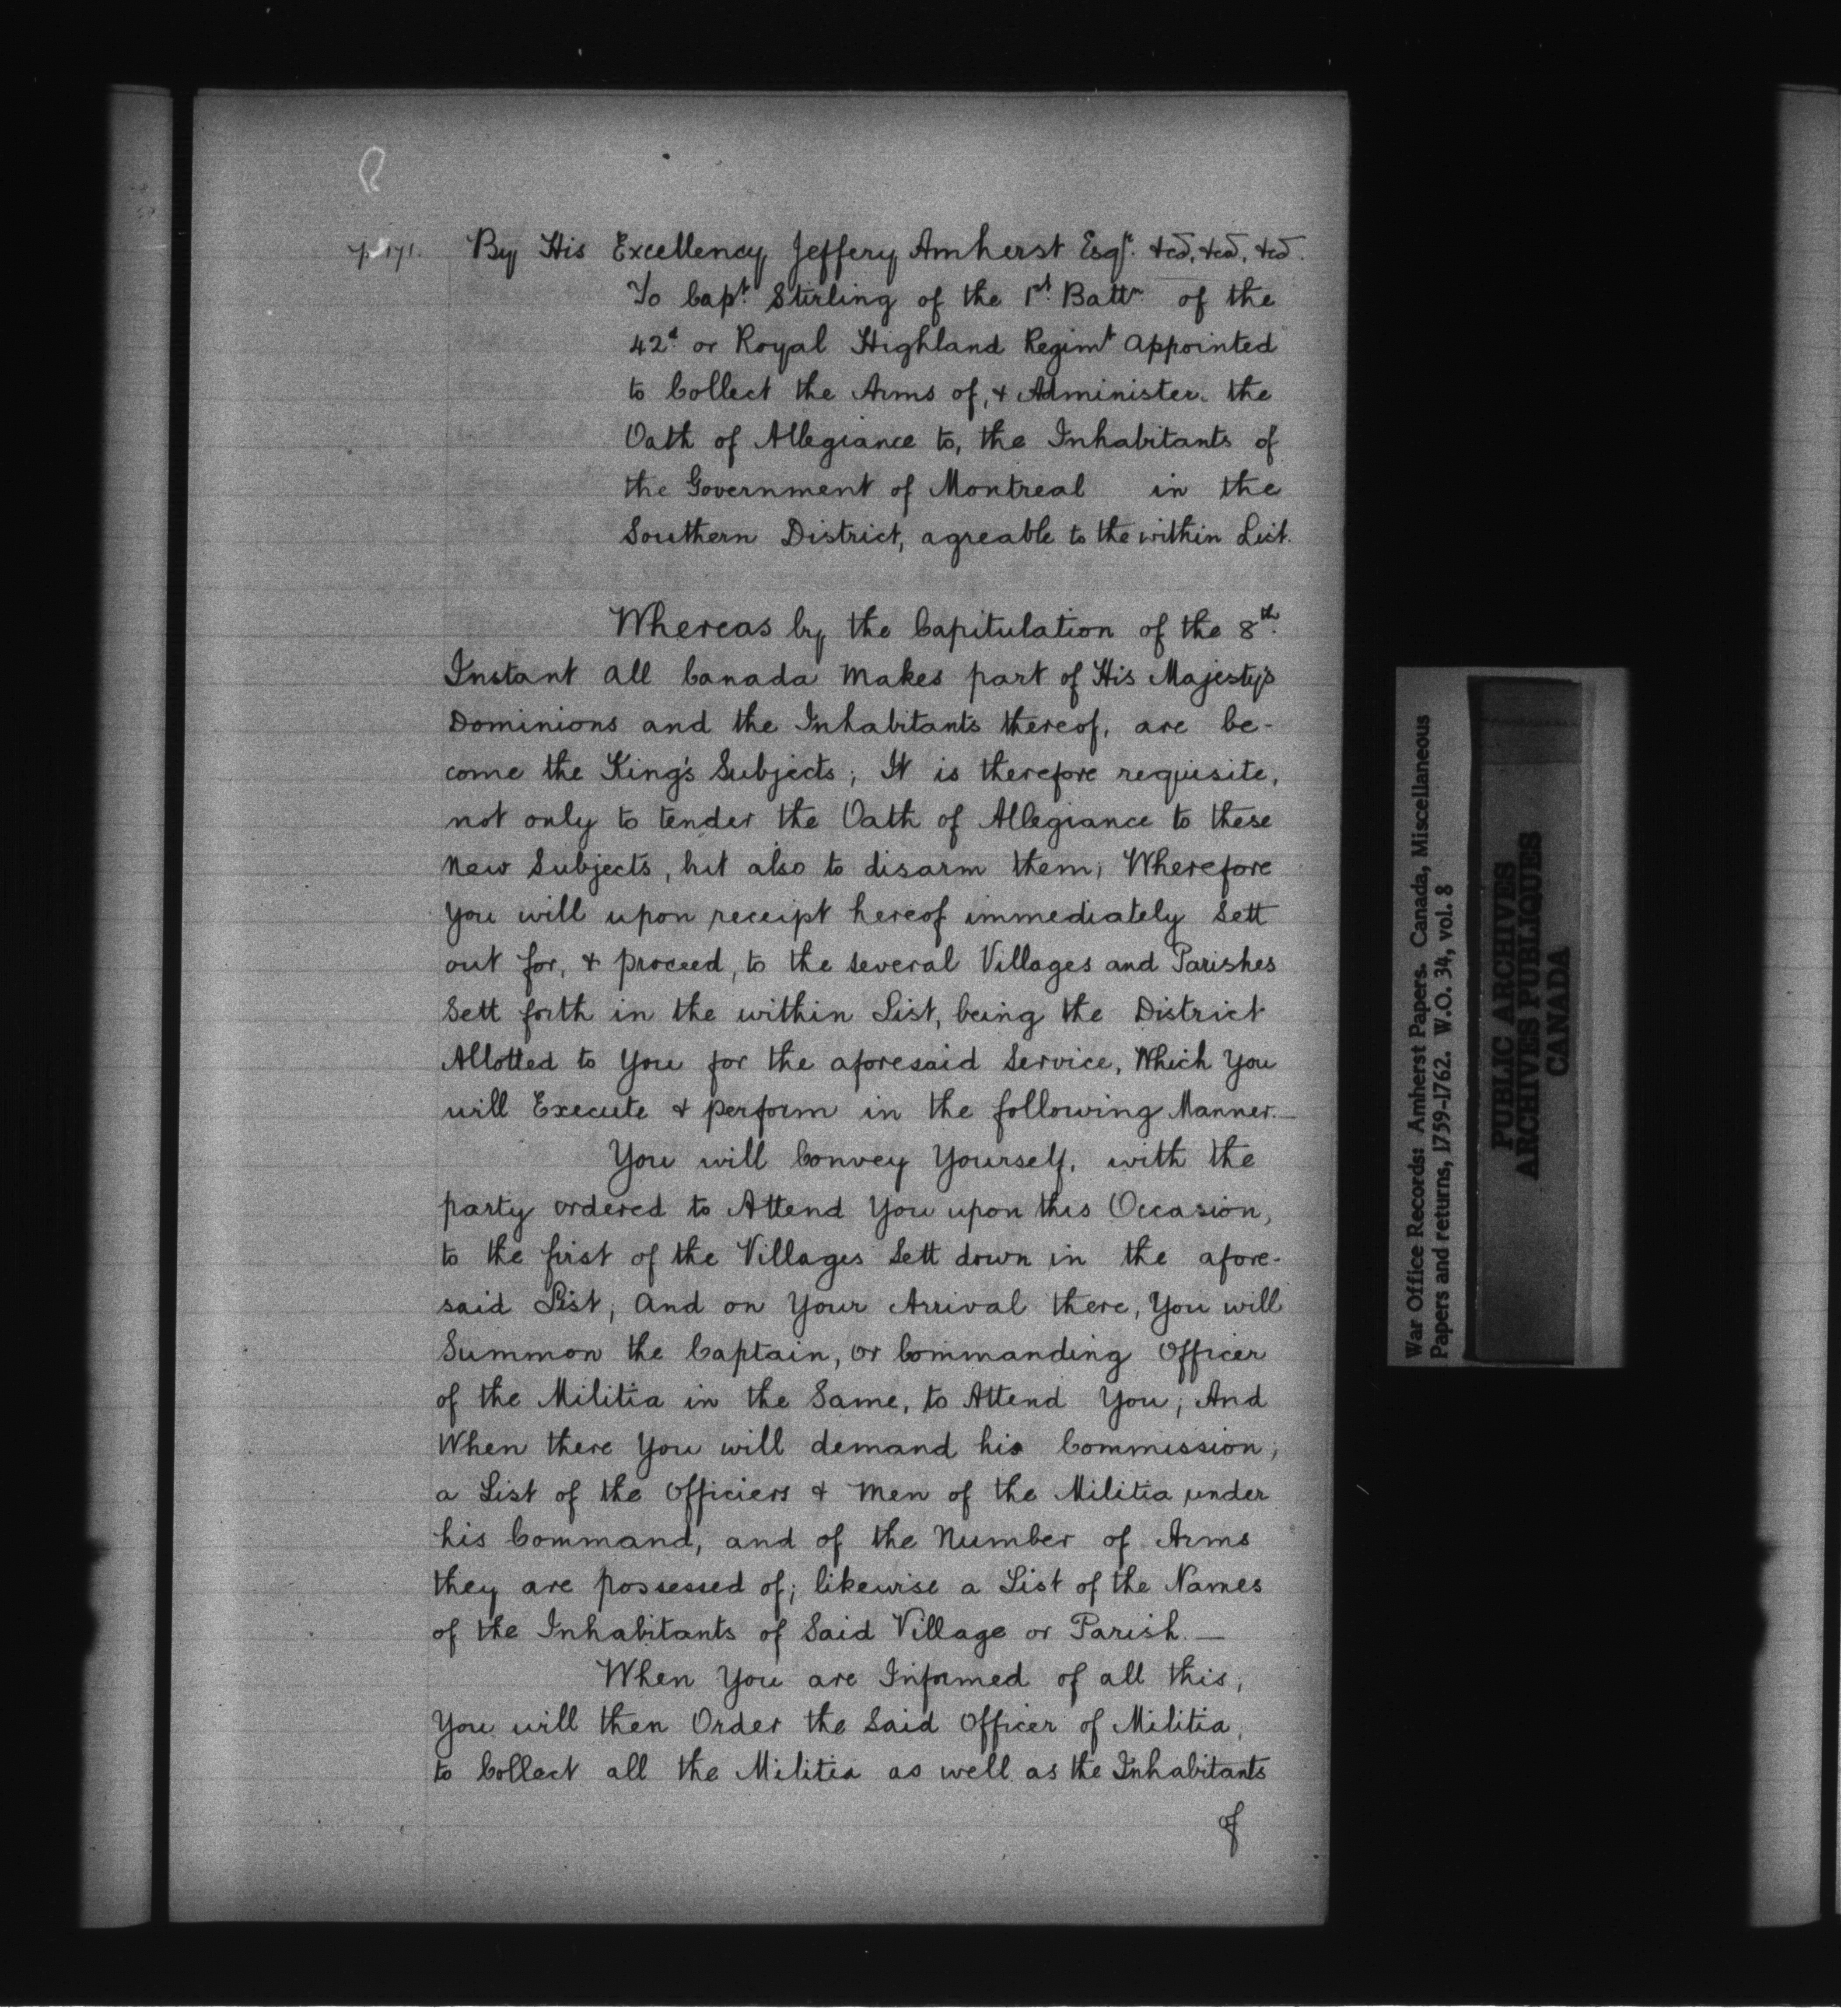 p. 171.
By His Excellency Jeffery Amherst Esqr. &ca, &ca, &ca.
To Capt. Stirling of the 1st. Battn. of the
42d. or Royal Highland Regimt Appointed
to Collect the Arms of, & Administer the
Oath of Allegiance to, the Inhabitants of
the Government of Montreal in the
Southern District, agreable to the within List.
Whereas by the Capitulation of the 8th.
Instant all Canada Makes part of His Majesty's
Dominions and the Inhabitants thereof, are be-
come the King's Subjects; It is therefore requisite,
not only to tender the Oath of Allegiance to these
New Subjects, but also to disarm them; Wherefore
You will upon receipt hereof immediately Sett
out for, & proceed, to the Several Villages and Parishes
Sett forth in the within List, being the District
Allotted to You for the aforesaid Service, Which You
will Execute & perform in the following Manner.—
You will Convey Yourself, with the
party ordered to Attend You upon this Occasion,
to the first of the Villages Sett down in the afore-
said List, And on Your Arrival there, You will
Summon the Captain, or Commanding Officer
of the Militia in the Same, to Attend You; And
When there You will demand his Commission;
a List of the Officiers & Men of the Militia under
his Command, and of the Number of Arms
they are possessed of; likewise a List of the Names
of the Inhabitants of Said Village or Parish.—
When You are Informed of all this,
You will then Order the Said Officer of Militia,
to Collect all the Militia as well as the Inhabitants
of
War Office Records: Amherst Papers. Canada, Miscellaneous
Papers and returns, 1759-1762. W.O. 34, vol. 8
PUBLIC ARCHIVES
ARCHIVES PUBLIQUES
CANADA